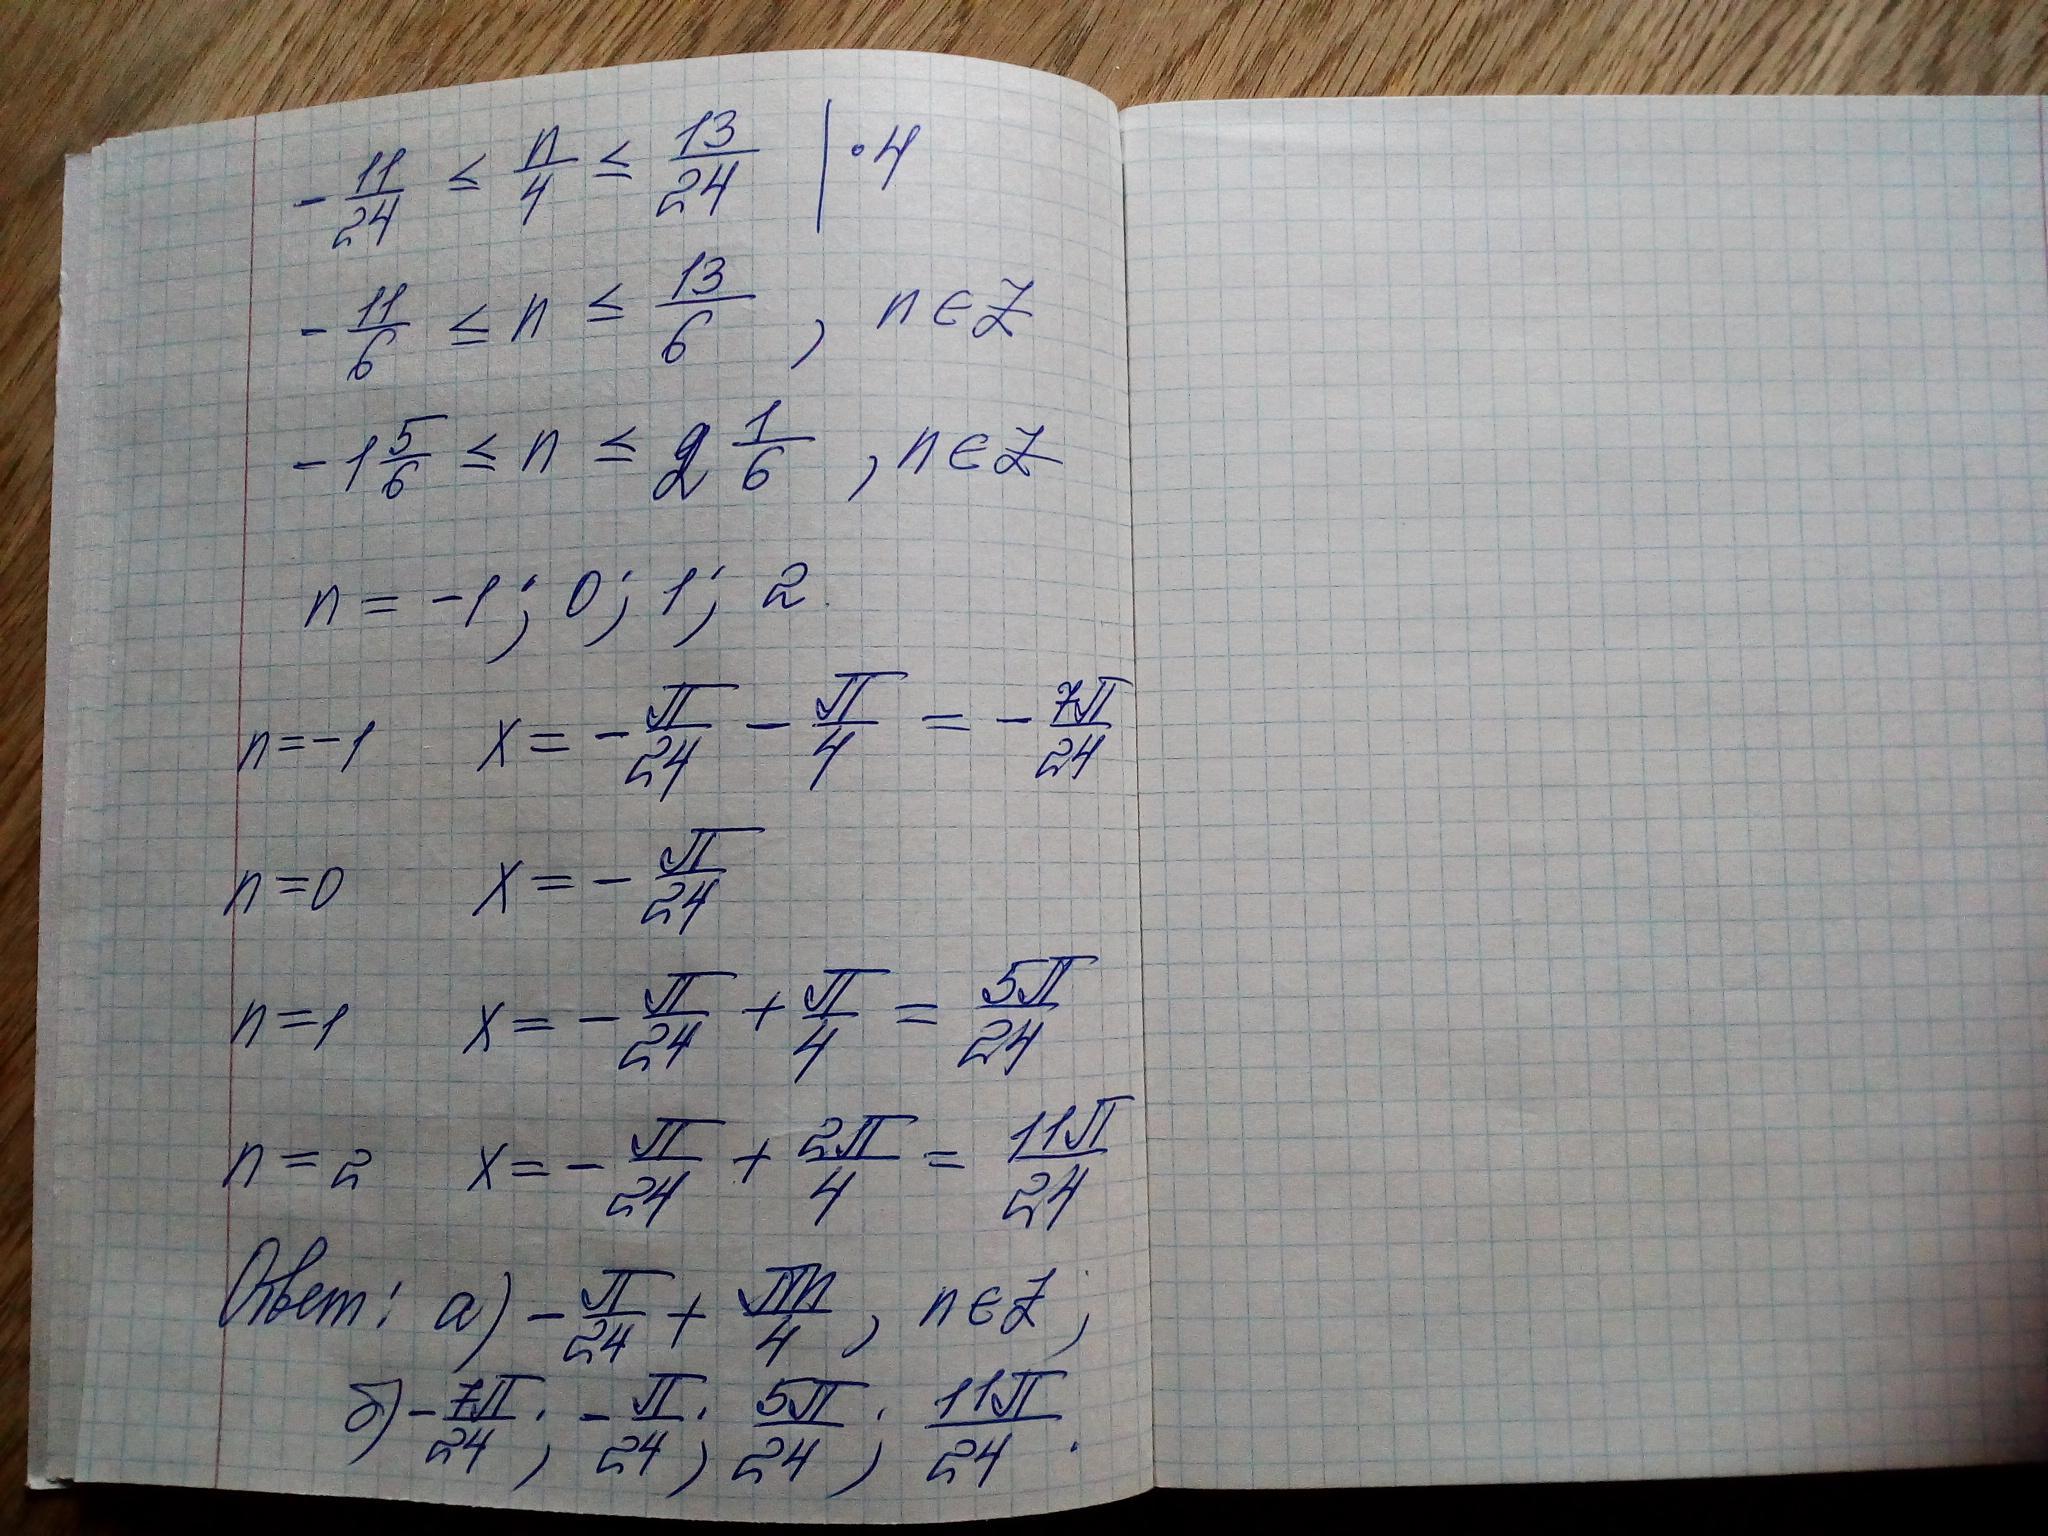 -11/24 ≤ n/4 ≤ 13/24 | ·4
-11/6 ≤ n ≤ 13/6, n∈Z
-1 5/6 ≤ n ≤ 2 1/6, n∈Z
n = -1; 0; 1; 2
n=-1 x = -π/24 - π/4 = -7π/24
n=0 x = -π/24
n=1 x = -π/24 + π/4 = 5π/24
n=2 x = -π/24 + 2π/4 = 11π/24
Ответ: а) -π/24 + πn/4, n∈Z;
б) -7π/24; -π/24; 5π/24; 11π/24.